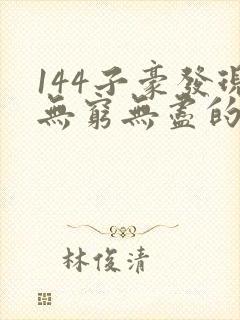 144子豪發現
無窮無盡的
林俊清